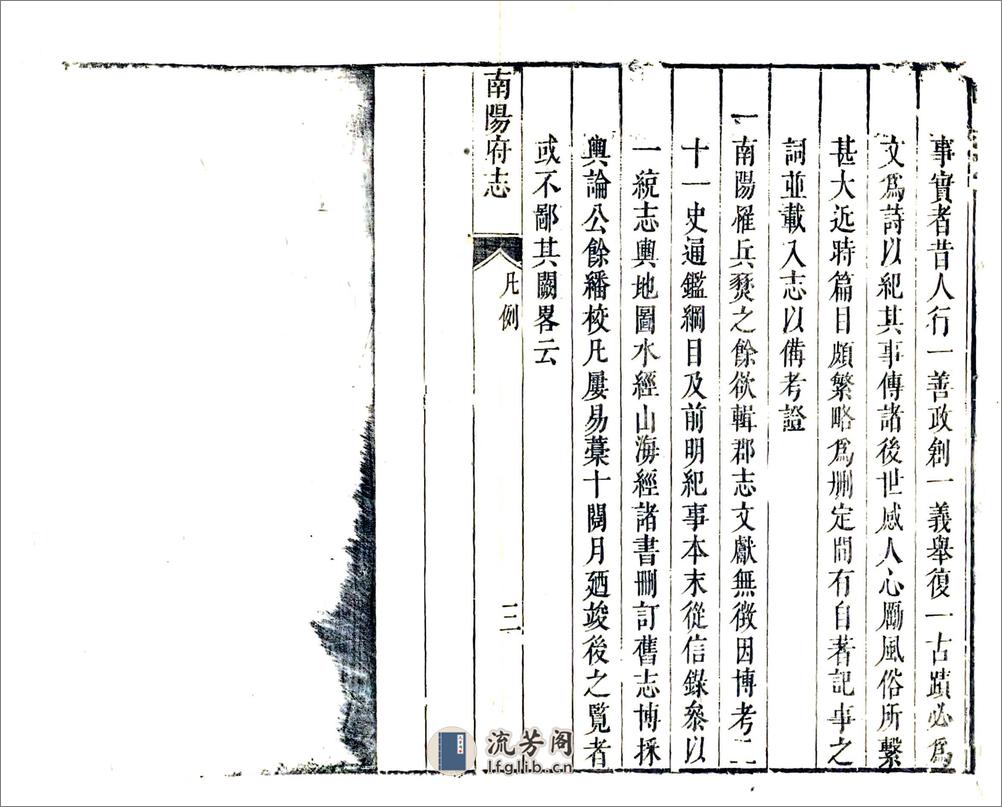 事實者昔人行一善政創一義舉復一古蹟必爲
文爲詩以紀其事傳諸後世感人心勵風俗所繫
甚大近時篇目頗繁略爲刪定間有自著記事之
詞並載入志以備考證
一南陽罹兵燹之餘欲輯郡志文獻無徵因博考二
十一史通鑑綱目及前明紀事本末從信錄叅以
一統志輿地圖水經山海經諸書刪訂舊志博採
輿論公餘繙校凡屢易藁十閱月廼竣後之覽者
或不鄙其闕畧云
南陽府志
凡例
三
流芳阁
lfglib.cn